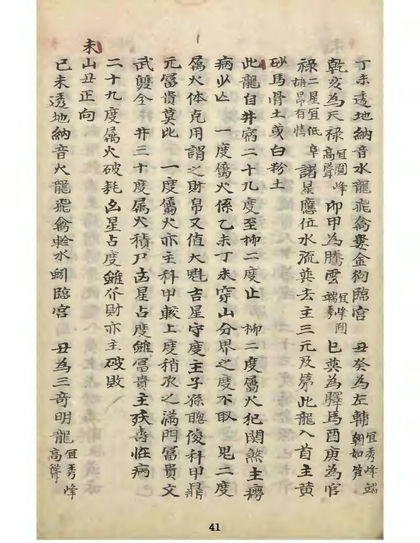 丁未透地納音水龍飛禽婁金狗臨宮　丑癸為左輔宜秀峰端朝如笋
乾亥為天祿宜圓峰高聳　卯甲為騰雲宜峰圓端秀　巳巽為驛馬酉庚為官
祿二星宜低昂有情　諸星應位水疏巽去主三元及第此龍入首主黄
砂馬骨土或白粉土
此龍自井宿二十九度至柳二度止　柳二度屬火犯関煞主癆
病少亡　一度屬火係乙未丁未穿山分界之度不取　鬼二度
屬火体克用謂之財帛又值大魁吉星守度主子孫聰俊科甲鼎
元富貴莫比　一度屬火亦主科甲較上度稍次之滿門富貴文
武雙全　井三十度屬火積尸凶星占度雖富貴主殀壽怔病
二十九度屬火破耗凶星占度雖分財亦主破敗
未山丑正向
己未透地納音火龍飛禽軫水蚓臨宮　丑為三奇明龍宜秀峰高聳
41